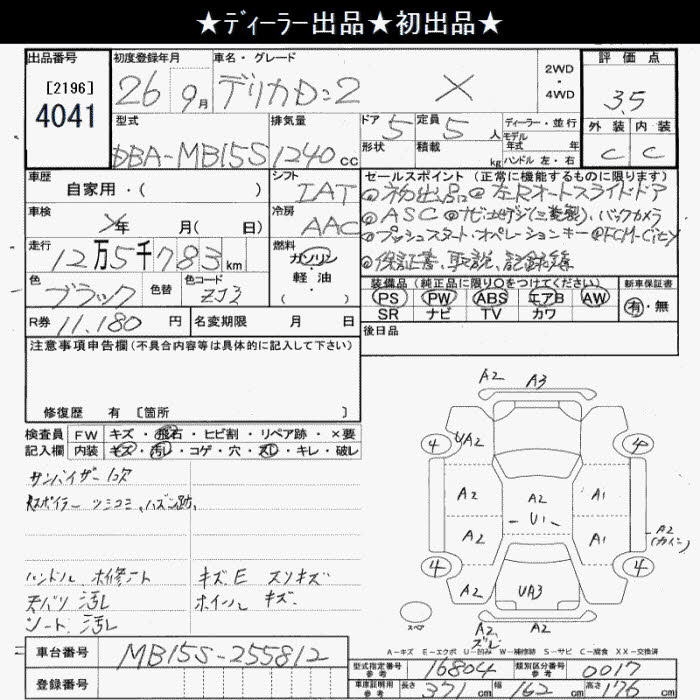 ★ディーラー出品★初出品★
出品番号
[2196]
4041
初度登録年月
26 9月
車名・グレード
デリカD:2 X
2WD
・
4WD
評価点
3.5
外装 内装
C C
型式
DBA-MB15S
排気量
1240cc
ドア 5
定員 5人
形状
積載 kg
ディーラー・並行
モデル
年式 年
ハンドル 左・右
車歴
自家用・( )
シフト
IAT
セールスポイント (正常に機能するものに限ります)
◎初出品◎左Rオートスライドドア
◎ASC◎ナビ・地デジ(三菱製)、バックカメラ
◎プッシュスタート・オペレーションキー◎FCM-City
◎保証書、取説、記録簿
車検
年 月( 日)
冷房
AAC
走行
12万5千783km
燃料
ガソリン
軽・油
( )
色
ブラック
色替
色コード
ZJ3
装備品 (純正品に限り○をつけてください)
PS PW ABS エアB AW
SR ナビ TV カワ
新車保証書
有・無
R券 11,180円
名変期限 月 日
後日品
注意事項申告欄 (不具合内容等は具体的に記入して下さい)
修復歴 有 〔箇所 〕
検査員
記入欄
FW キズ・飛石・ヒビ割・リペア跡・×要
内装 キズ・汚レ・コゲ・穴・スレ・キレ・破レ
サンバイザー
スポイラー
ハンドル ホ修アト
天バリ 汚レ
シート 汚レ
キズ、E スリキズ
ホイール キズ
A2 A3
4 UA2 4
A2 A2 A1
U1
A2 A1 A2
4 4
A2 UA3 A2
A2 A2
スペア
A-キズ E-エクボ U-凹み W-補修跡 S-サビ C-腐食 XX-交換済
車台番号 MB15S-255812
登録番号
型式指定番号
参考
16804
類別区分番号
参考
0017
車庫証明用
参考
長さ 371cm 幅 162cm 高さ 176cm